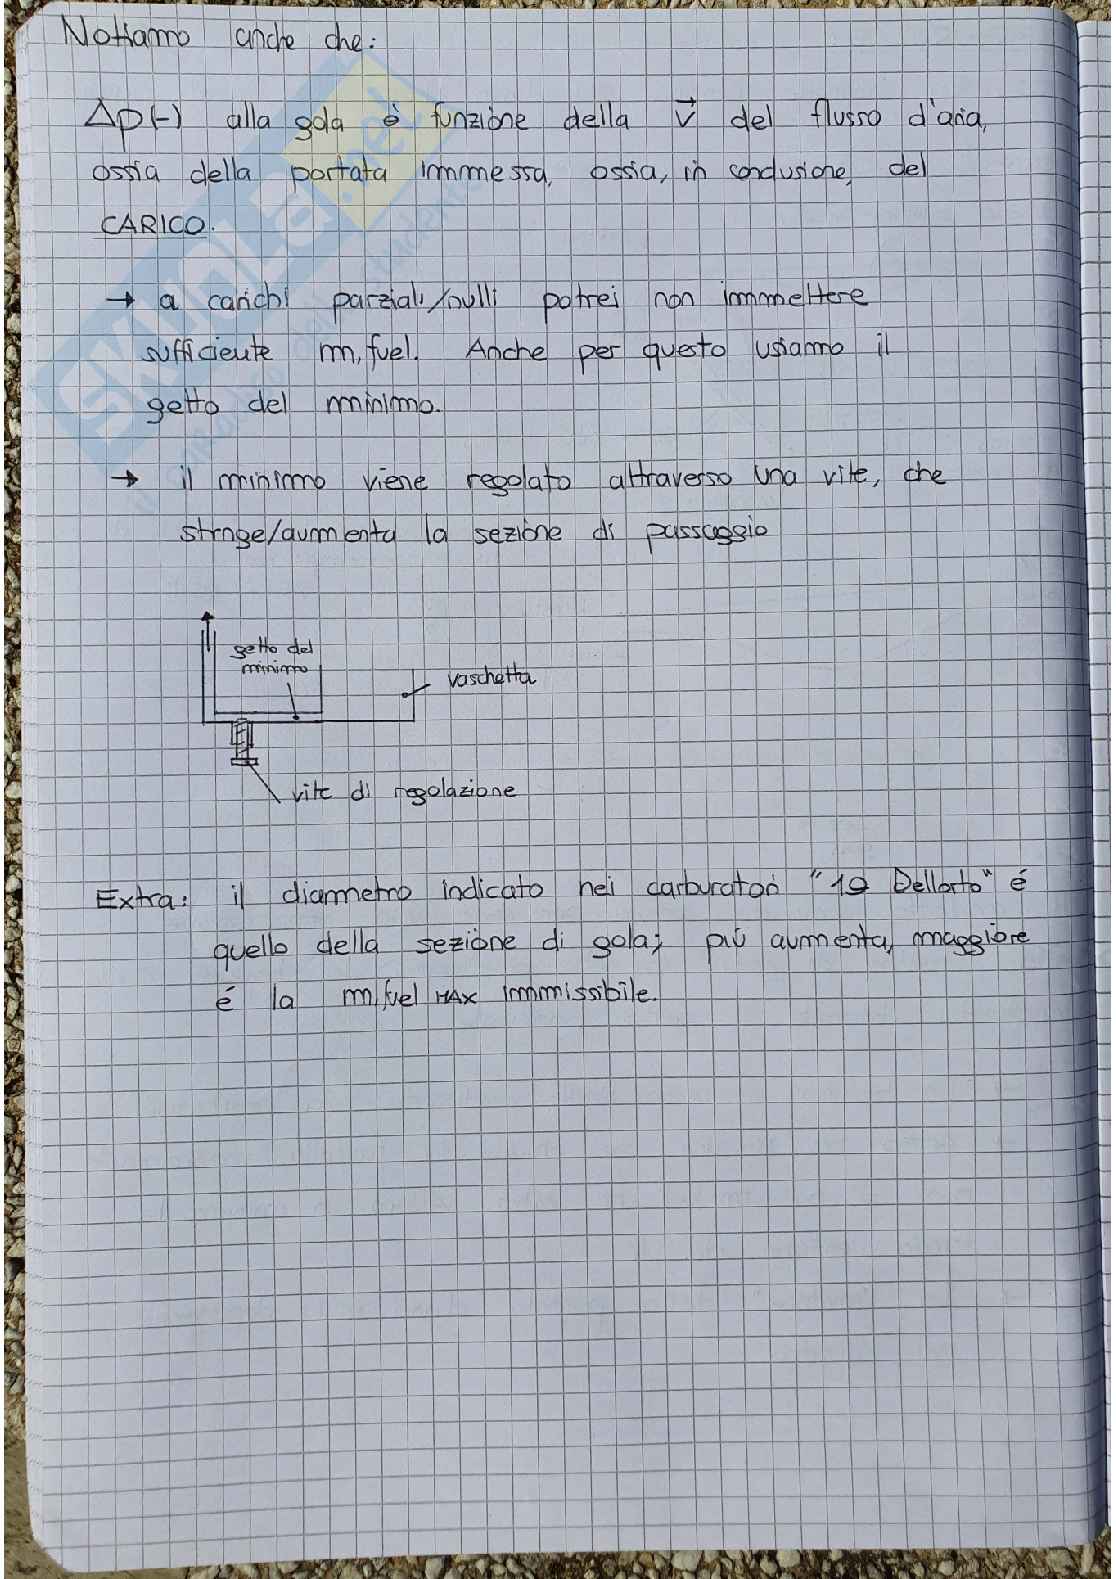 Notiamo anche che:
Δp(-) alla gola è funzione della v⃗ del flusso d'aria,
ossia della portata immessa, ossia, in conclusione, del
CARICO.
→ a carichi parziali/nulli potrei non immettere
sufficiente m,fuel. Anche per questo usiamo il
getto del minimo.
→ il minimo viene regolato attraverso una vite, che
stringe/aumenta la sezione di passaggio
getto del
minimo
vaschetta
vite di regolazione
Extra: il diametro indicato nei carburatori "19 Dellorto" é
quello della sezione di gola; più aumenta, maggiore
é la m,fuel MAX immissibile.
SKUOLA.net